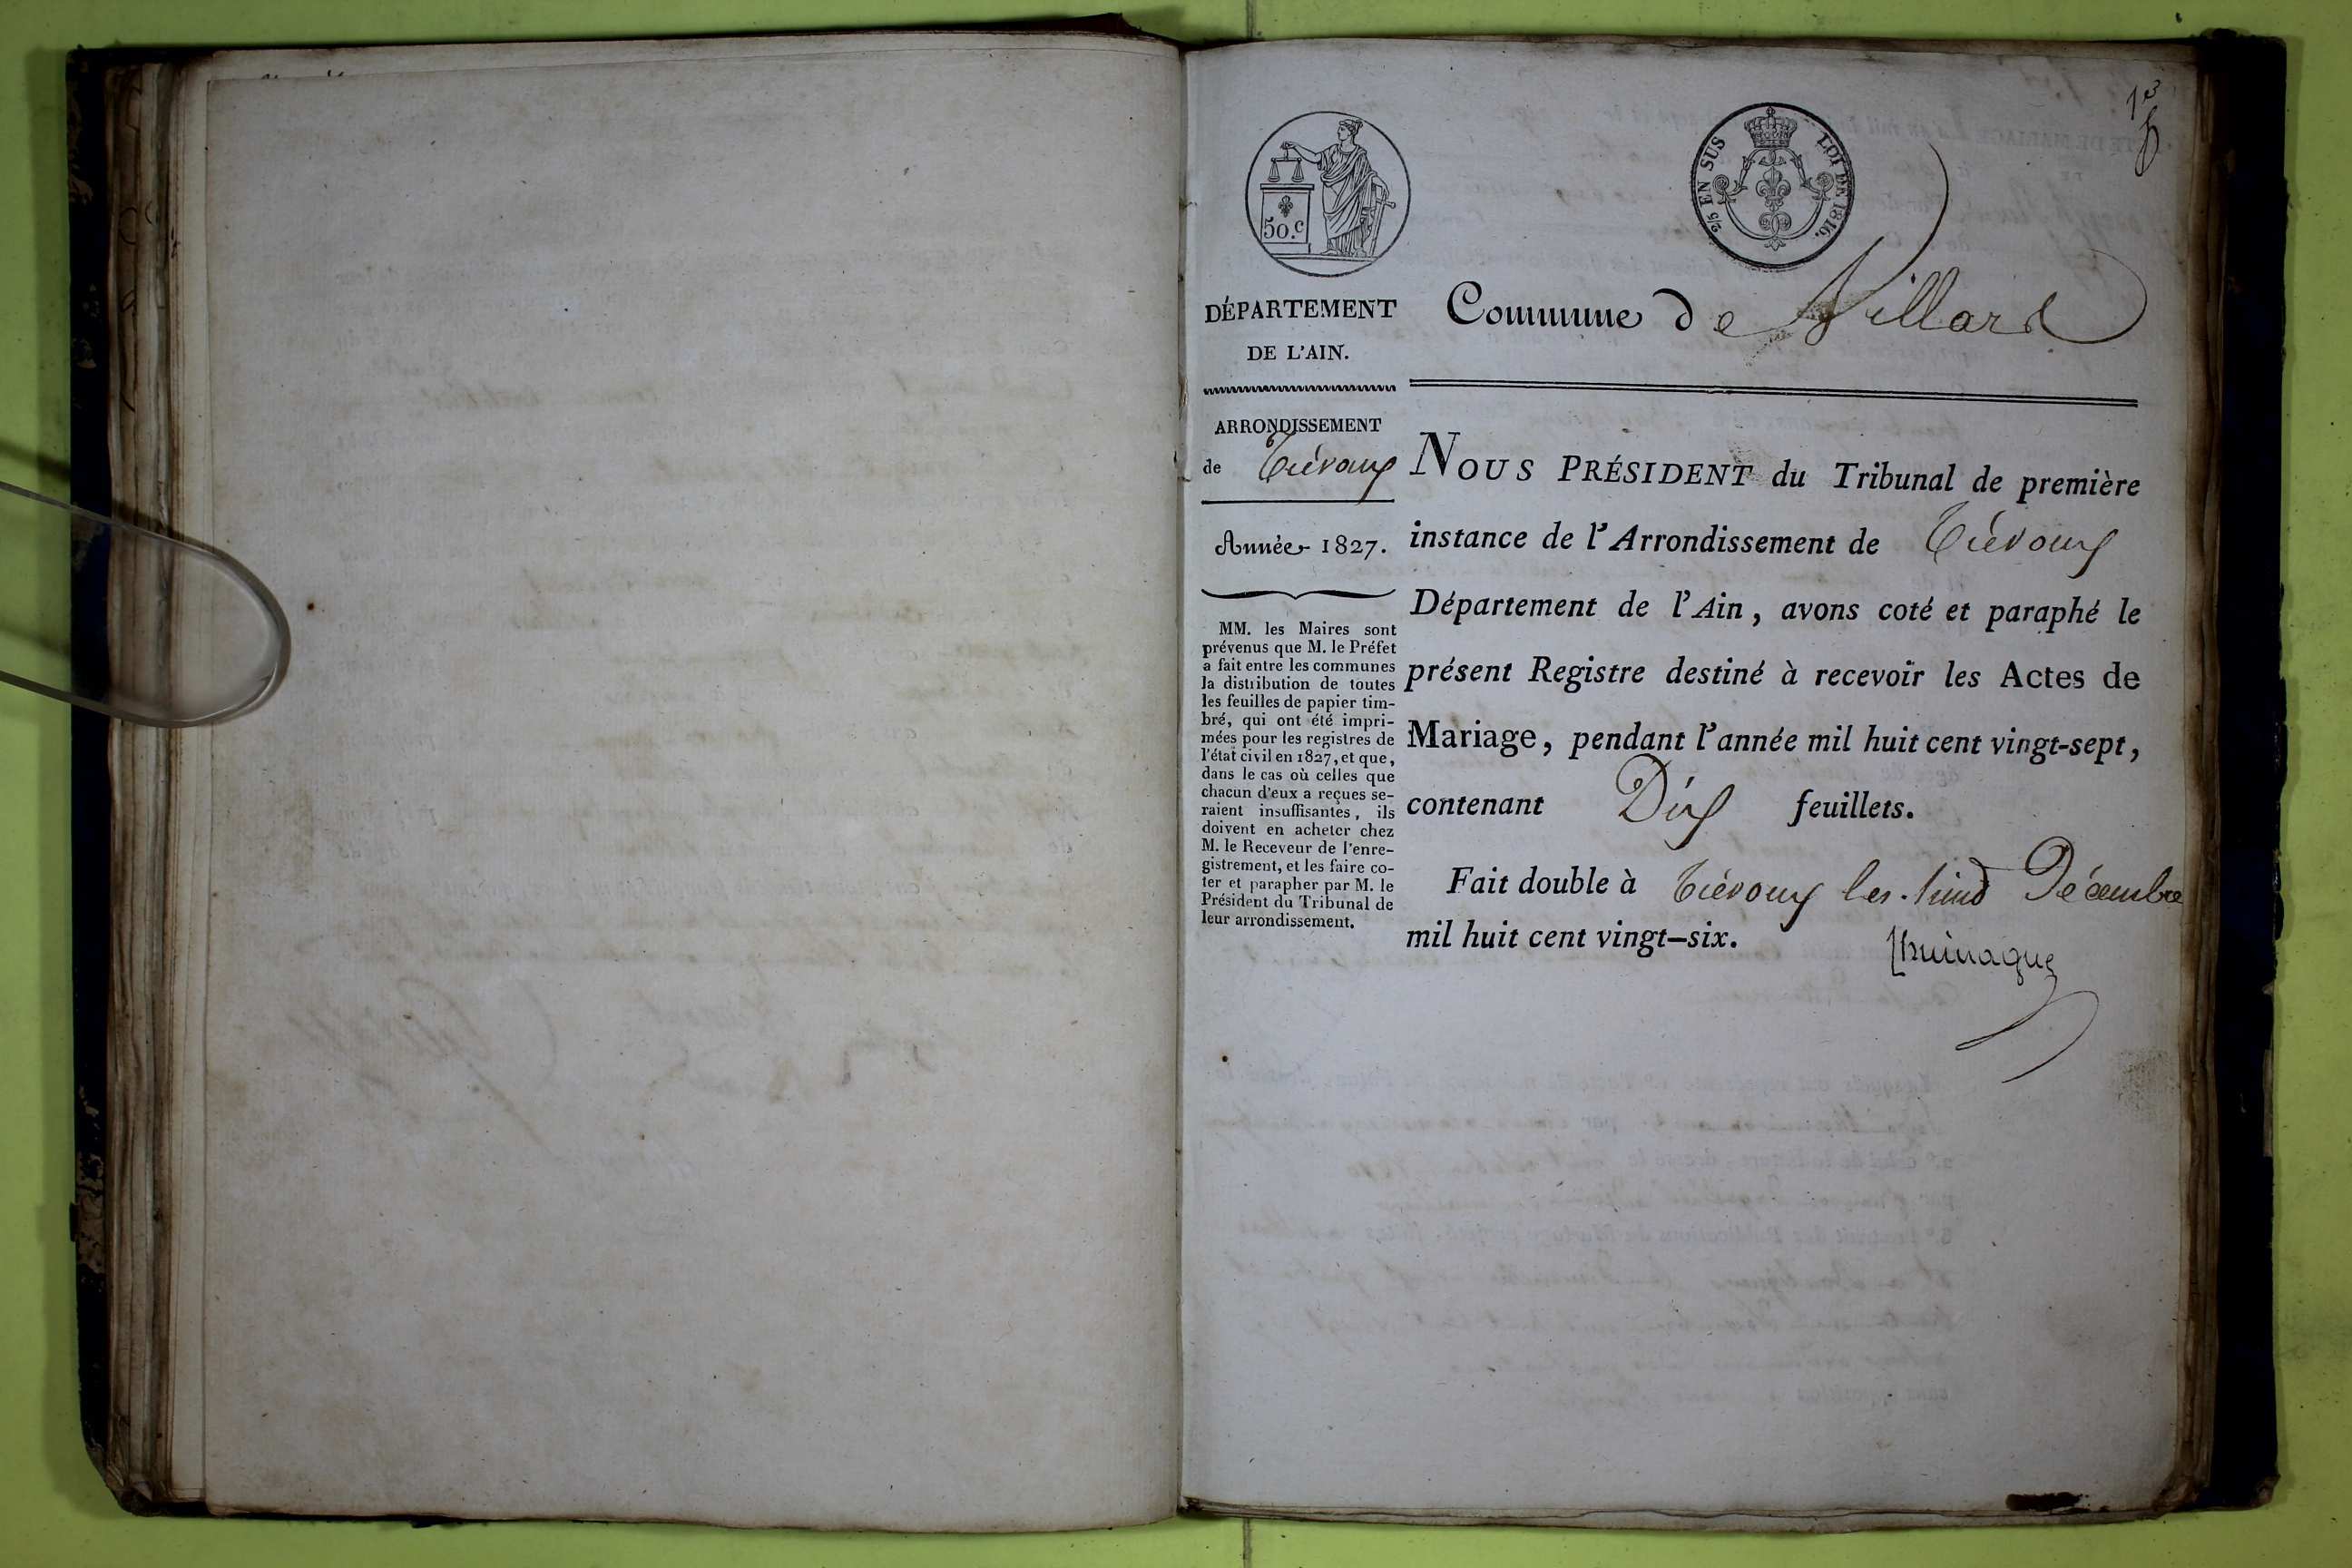 1er
50.c
2/5 EN SUS LOI DE 1816.
DÉPARTEMENT
DE L'AIN.
Commune de Villars
ARRONDISSEMENT
de Trévoux
Année 1827.
MM. les Maires sont
prévenus que M. le Préfet
a fait entre les communes
la distribution de toutes
les feuilles de papier tim-
bré, qui ont été impri-
mées pour les registres de
l'état civil en 1827, et que,
dans le cas où celles que
chacun d'eux a reçues se-
raient insuffisantes, ils
doivent en acheter chez
M. le Receveur de l'enre-
gistrement, et les faire co-
ter et parapher par M. le
Président du Tribunal de
leur arrondissement.
NOUS PRÉSIDENT du Tribunal de première
instance de l'Arrondissement de Trévoux
Département de l'Ain, avons coté et paraphé le
présent Registre destiné à recevoir les Actes de
Mariage, pendant l'année mil huit cent vingt-sept,
contenant Dix feuillets.
Fait double à Trévoux les Décembre
mil huit cent vingt-six.